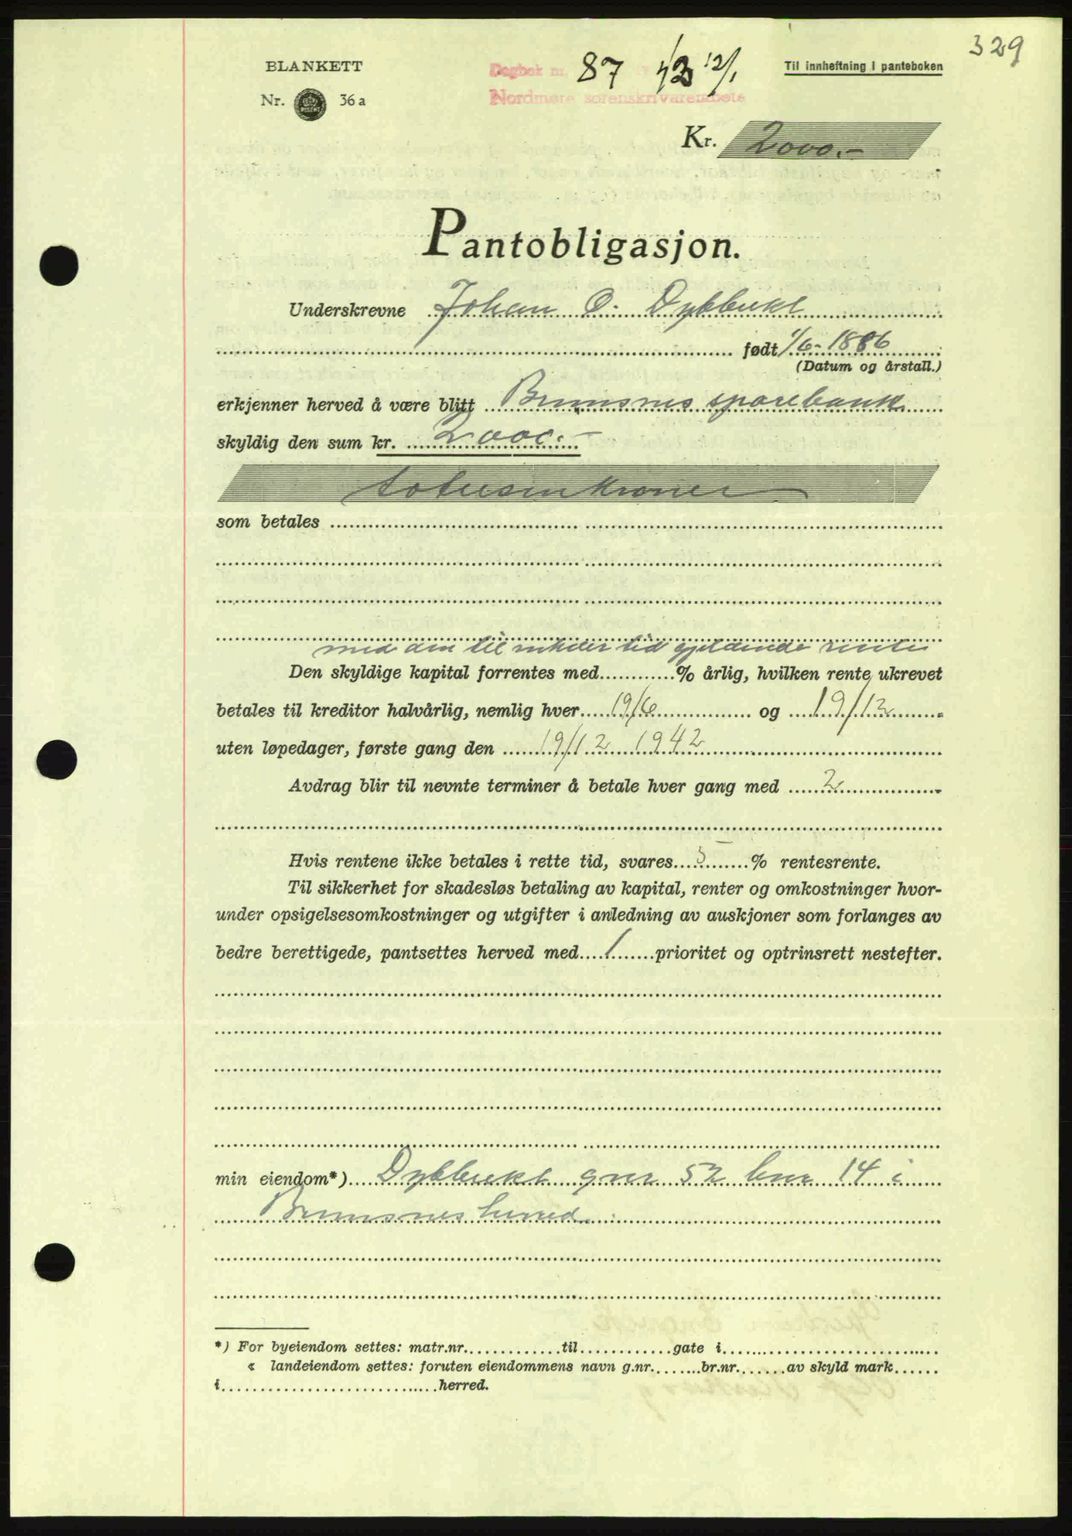 329
BLANKETT
Nr. 36 a
Dagbok nr. 87 /43 12/1
Nordmøre sorenskriverembete
Til innheftning i panteboken
Kr. 2000.-
Pantobligasjon.
Underskrevne Johan O. Dybbukt
født 1/6-1886
(Datum og årstall.)
erkjenner herved å være blitt Bremsnes sparebank
skyldig den sum kr. 2000.-
totusen kroner
som betales
med den til enhver tid gjeldende rente
Den skyldige kapital forrentes med............% årlig, hvilken rente ukrevet
betales til kreditor halvårlig, nemlig hver 19/6 og 19/12
uten løpedager, første gang den 19/12 1942
Avdrag blir til nevnte terminer å betale hver gang med 2
Hvis rentene ikke betales i rette tid, svares 5 % rentesrente.
Til sikkerhet for skadesløs betaling av kapital, renter og omkostninger hvor-
under opsigelsesomkostninger og utgifter i anledning av auskjoner som forlanges av
bedre berettigede, pantsettes herved med 1 prioritet og optrinsrett nestefter.
min eiendom*) Dybbukt gnr 52 bnr 14 i
Bremsnes herred.
*) For byeiendom settes: matr.nr. til gate i
« landeiendom settes: foruten eiendommens navn g.nr. br.nr. av skyld mark
i herred.